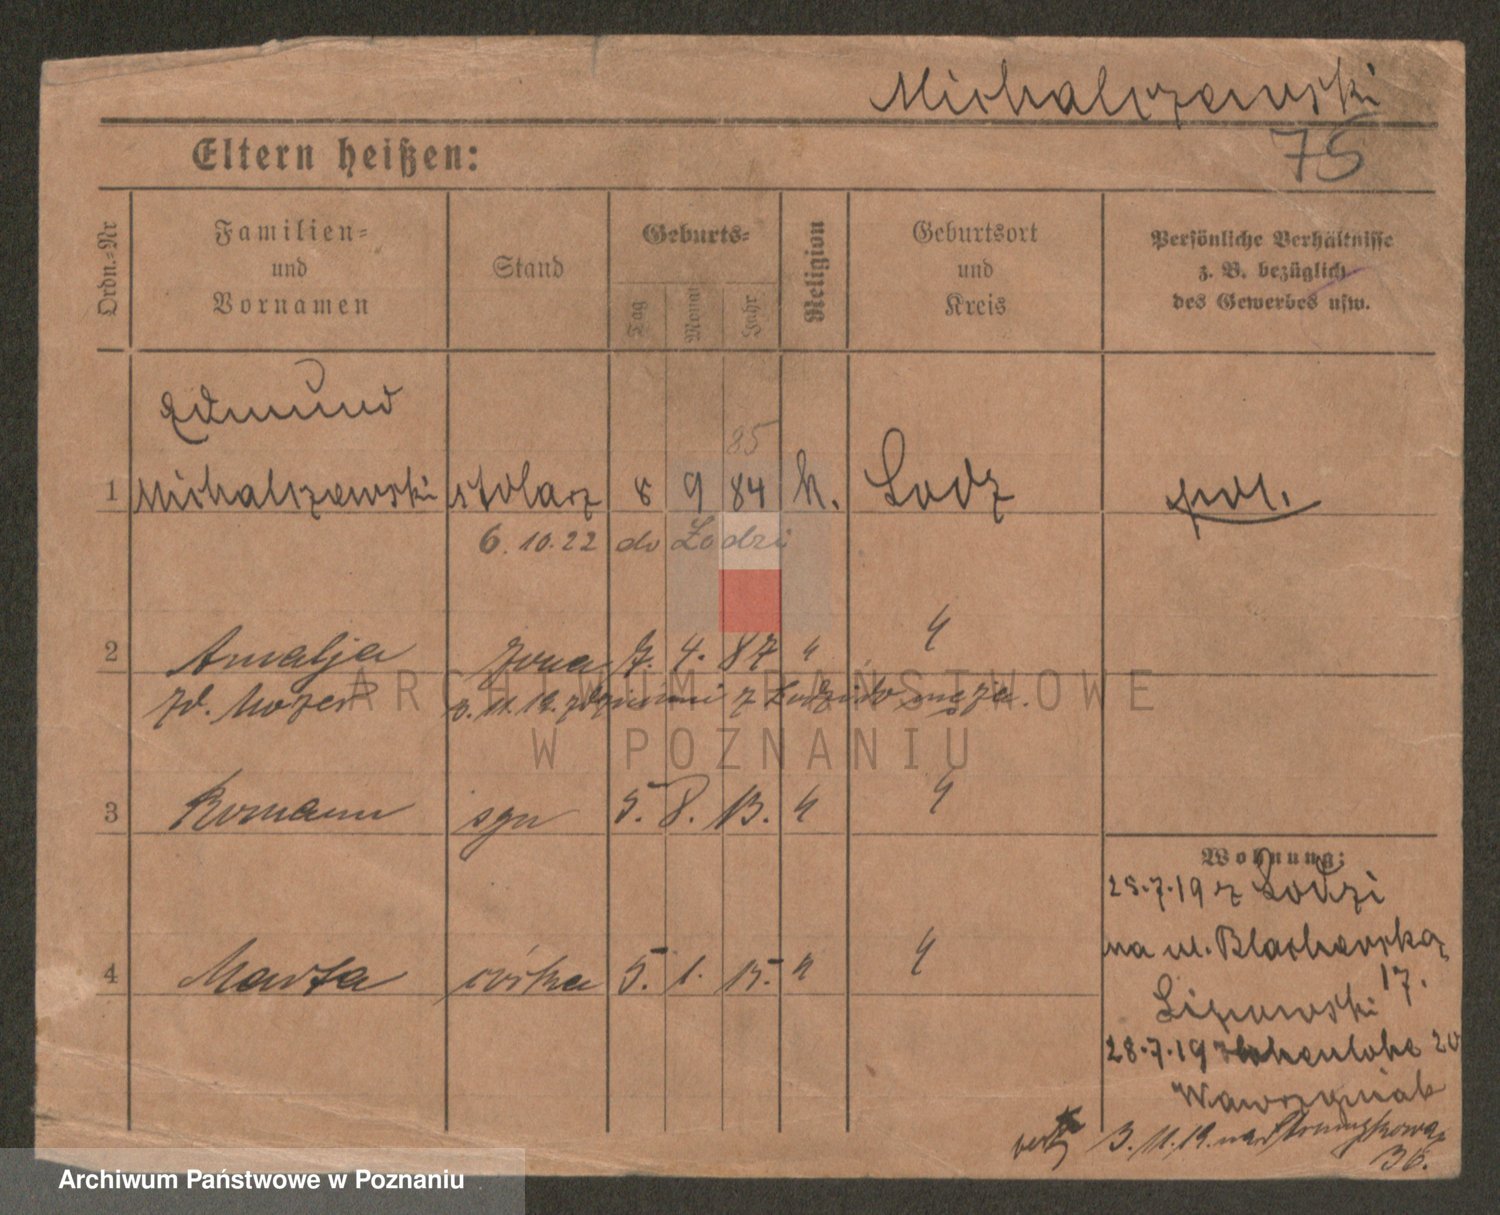 Michalczewski
75
Eltern heißen:
Ordn.-Nr
Familien-
und
Vornamen
Stand
Geburts-
Tag
Monat
Jahr
Religion
Geburtsort
und
Kreis
Persönliche Verhältnisse
z. B. bezüglich
des Gewerbes usw.
Edmund
85
1 Michalczewski stolarz 8 9 84 k. Lodz pol.
6.10.22 do Łodzi
2 Amalja żona 7. 4. 87 " "
zd. Mozer 3.11.19. z dziećmi z Łodzi do męża.
3 Romann syn 5. 8. 13. " "
4 Marta córka 5. 1. 15. " "
Wohnung:
25.7.19 z Łodzi
na ul. Blacharska
17.
28.7.19 Hohenlohe 20
Wawrzyniak
3.11.19. na
36.
ARCHIWUM PAŃSTWOWE
W POZNANIU
Archiwum Państwowe w Poznaniu